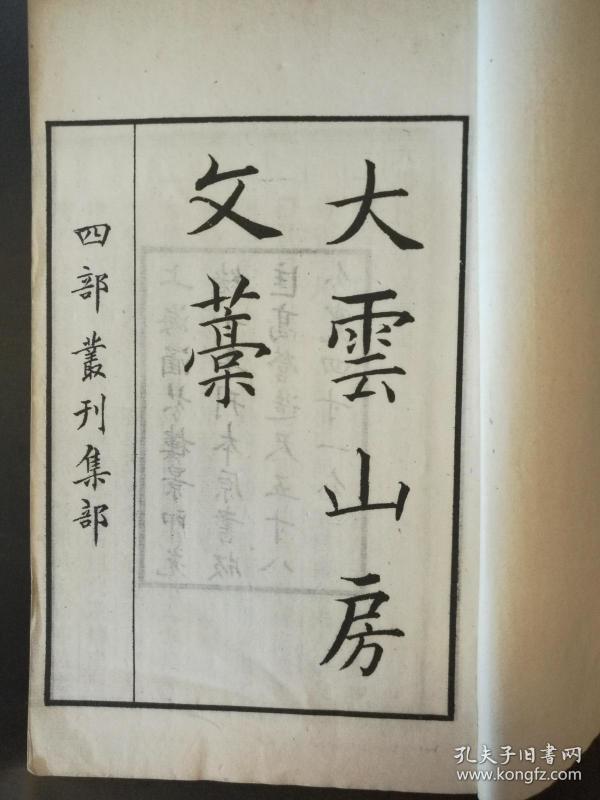 大雲山房
文藁
四部叢刊集部
孔夫子旧书网
www.kongfz.com